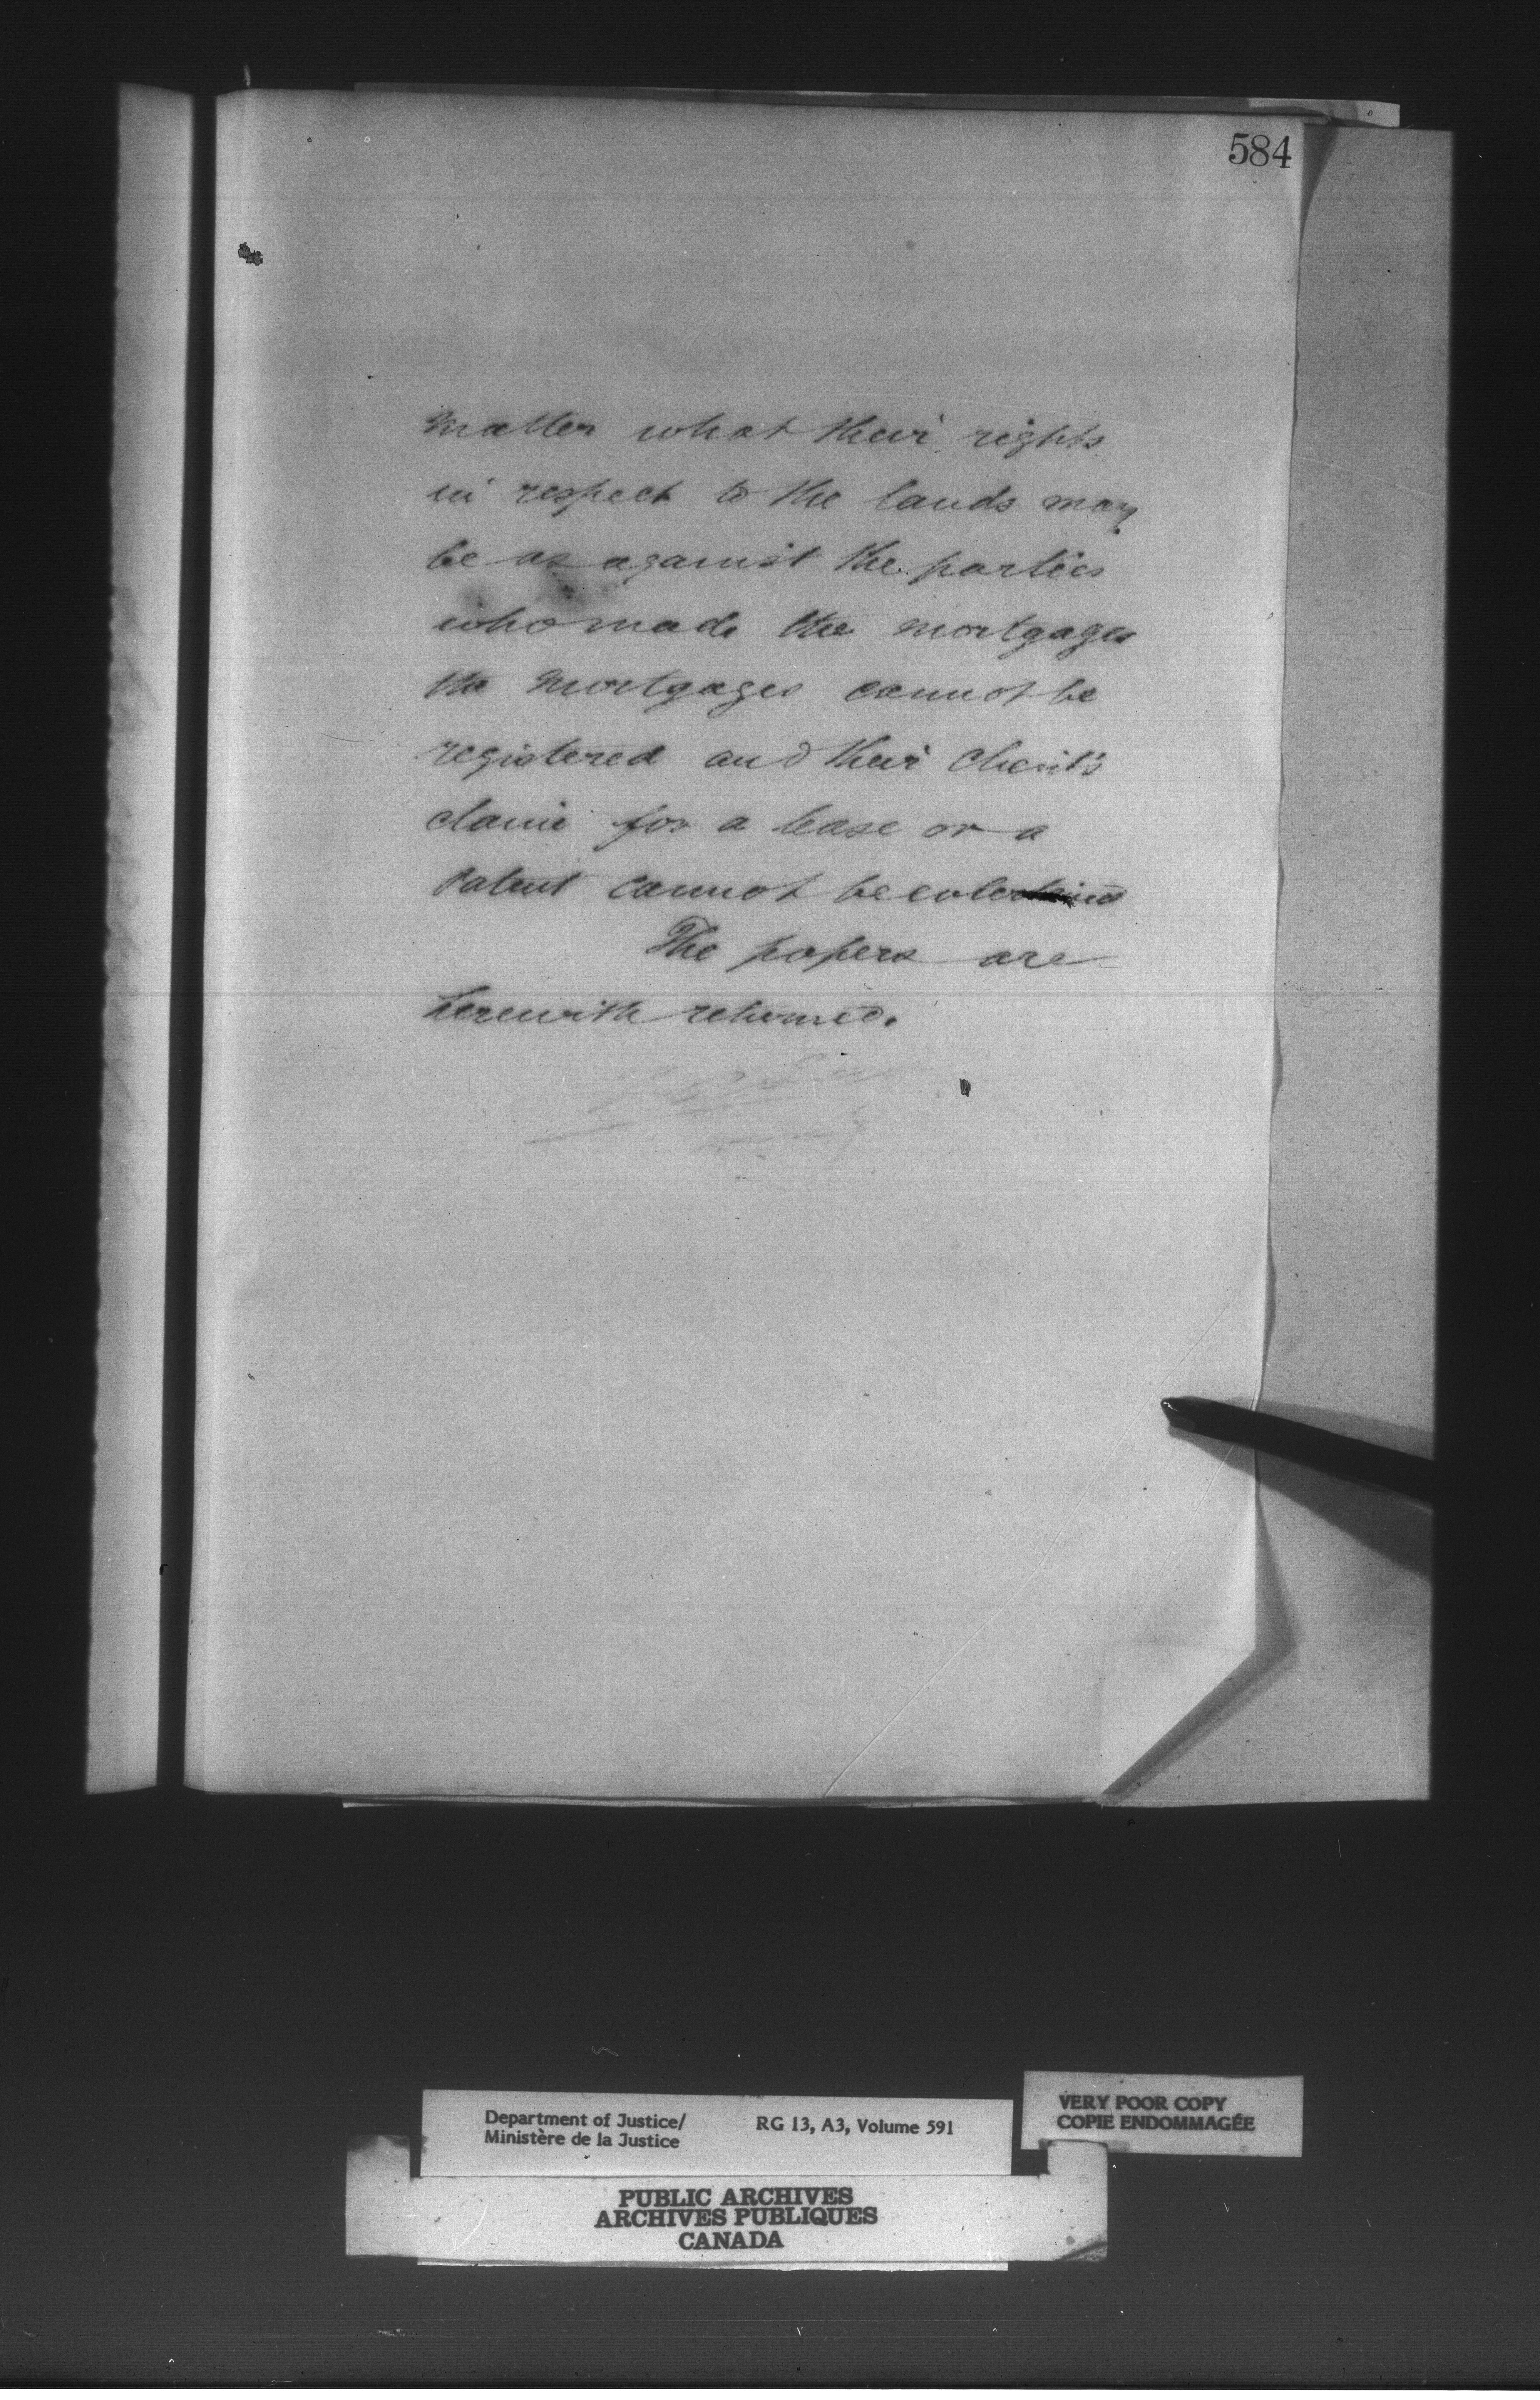 584
matter what their rights
in respect to the lands may
be as against the parties
who made the mortgages
the mortgages cannot be
registered and their client's
claim for a lease or a
Patent cannot be entertained
The papers are
herewith returned.
Department of Justice/
Ministère de la Justice
RG 13, A3, Volume 591
VERY POOR COPY
COPIE ENDOMMAGÉE
PUBLIC ARCHIVES
ARCHIVES PUBLIQUES
CANADA